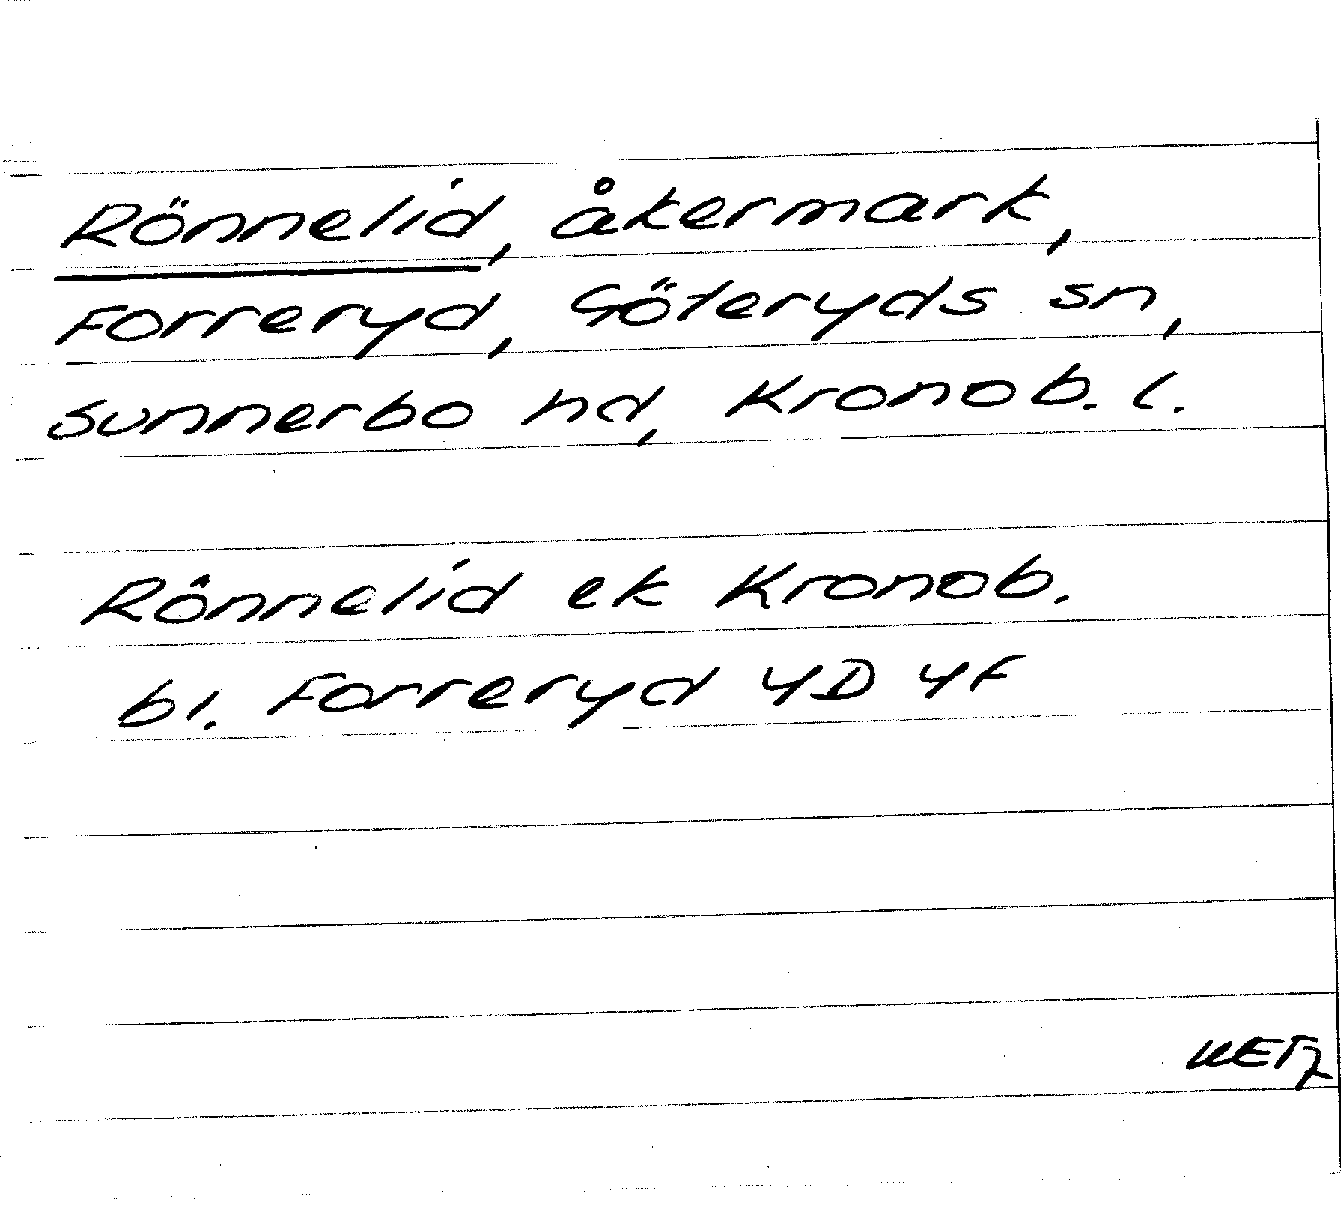 Rönnelid, åkermark,
Forreryd, Göteryds sn,
Sunnerbo hd, Kronob. l.
Rönnelid ek Kronob.
bl. Forreryd 4D 4F